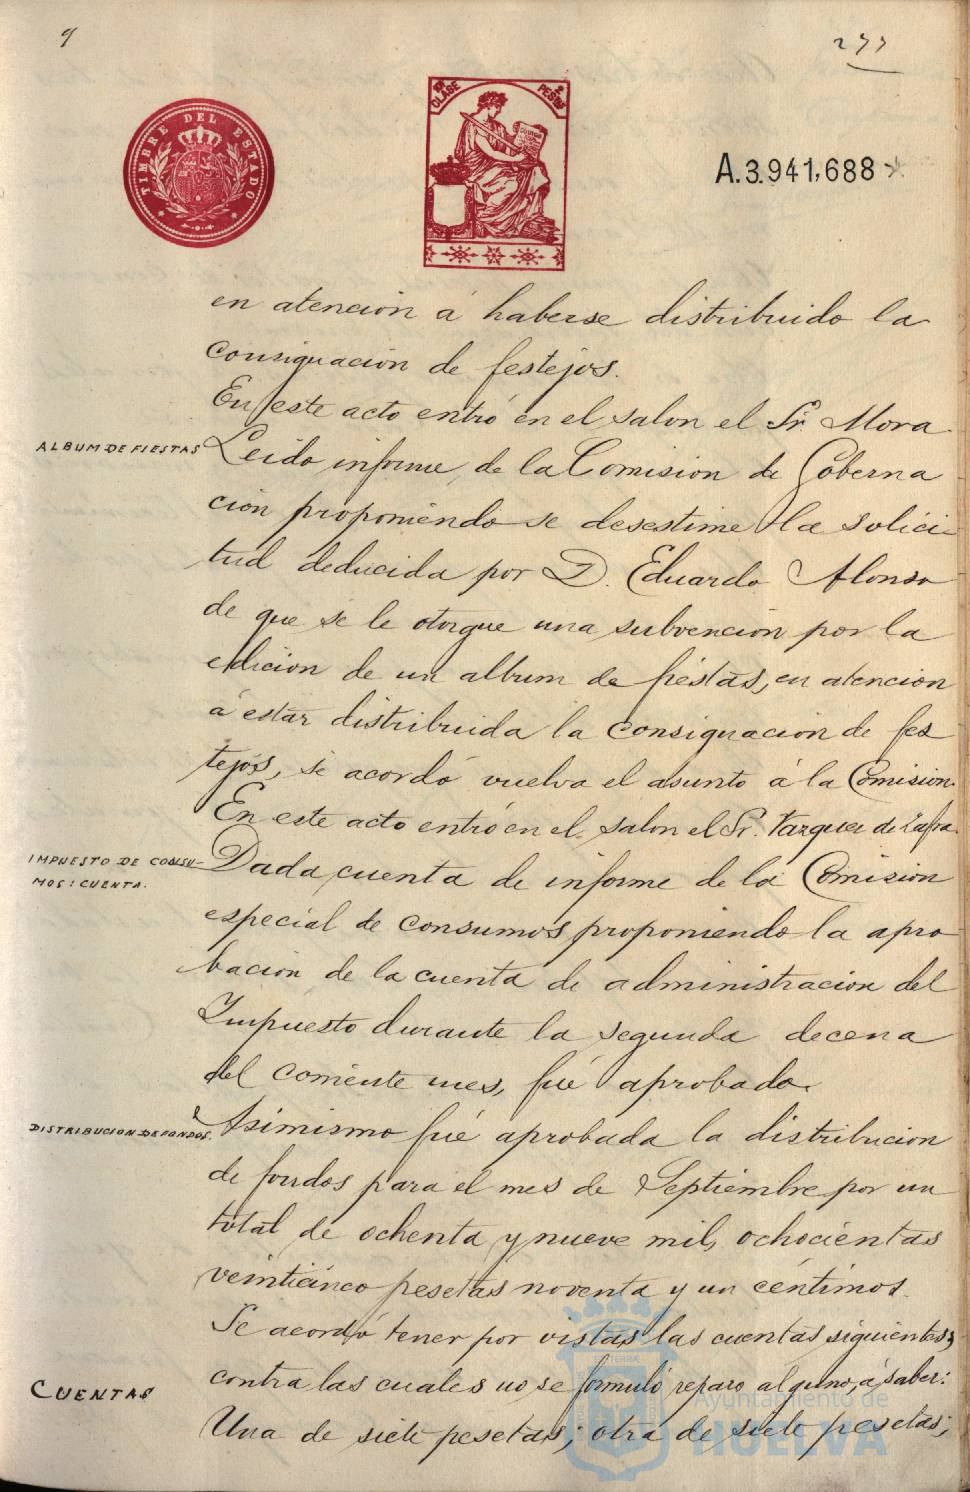 9
277
TIMBRE DEL ESTADO
CLASE
PESTAS
2
A.3.941,688
en atención á haberse distribuido la
consignación de festejos.
En este acto entró en el salon el Sr. Mora
ALBUM DE FIESTAS
Leido informe de la Comisión de Goberna
ción proponiendo se desestime la solici-
tud deducida por D. Eduardo Alonso
de que se le otorgue una subvención por la
edición de un album de fiestas, en atencion
á estar distribuida la consignación de fes
tejos, se acordó vuelva el asunto á la Comision.
En este acto entró en el salon el Sr. Vazquez de Zafra.
IMPUESTO DE CONSU-
MOS: CUENTA.
Dada cuenta de informe de la Comisión
especial de consumos proponiendo la apro
bación de la cuenta de administración del
Impuesto durante la segunda decena
del corriente mes, fué aprobada.
DISTRIBUCION DE FONDOS.
Asimismo fué aprobada la distribucion
de fondos para el mes de Septiembre por un
total de ochenta y nueve mil, ochocientas
veinticinco pesetas noventa y un céntimos.
Se acordó tener por vistas las cuentas siguientes,
contra las cuales no se formuló reparo alguno, á saber:
CUENTAS
Una de siete pesetas; otra de siete pesetas;
Ayuntamiento de
HUELVA